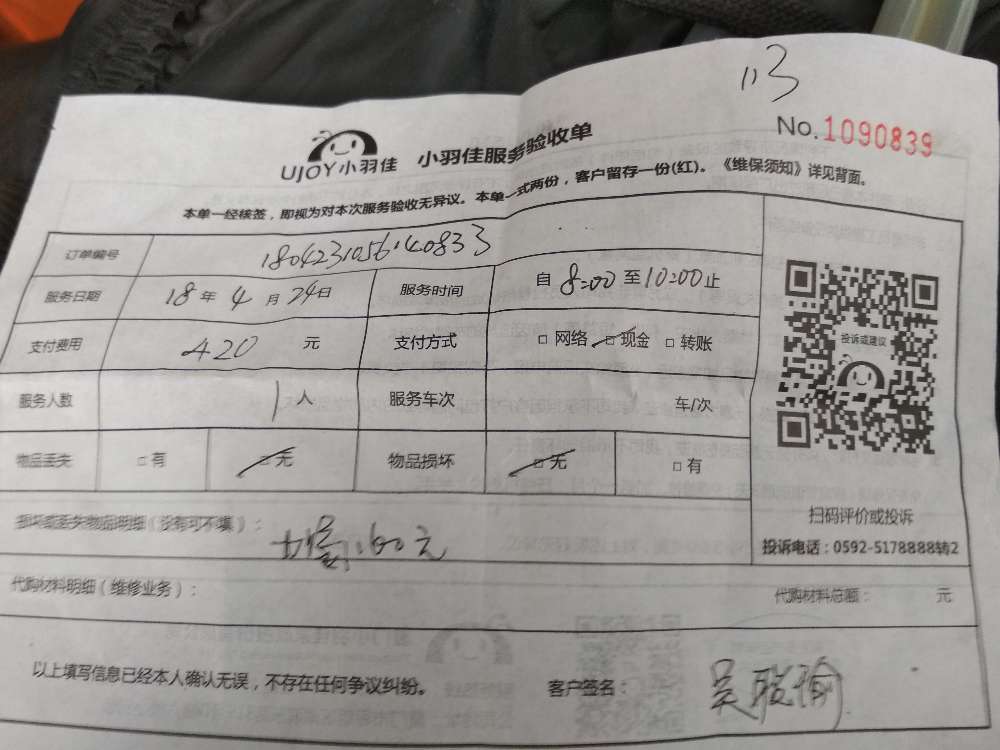 113
No.1090839
UJOY小羽佳 小羽佳服务验收单
本单一经核签，即视为对本次服务验收无异议。本单一式两份，客户留存一份(红)。《维保须知》详见背面。
订单编号 180423105640833
服务日期 18年4月24日 服务时间 自8:00至10:00止
支付费用 420元 支付方式 □网络 □现金 □转账
服务人数 1人 服务车次 车/次
物品丢失 □有 □无 物品损坏 □无 □有
投诉或建议
扫码评价或投诉
投诉电话：0592-5178888转2
损坏或丢失物品明细（没有可不填）：
元
代购材料明细（维修业务）： 代购材料总额： 元
以上填写信息已经本人确认无误，不存在任何争议纠纷。 客户签名： 吴聪瑜